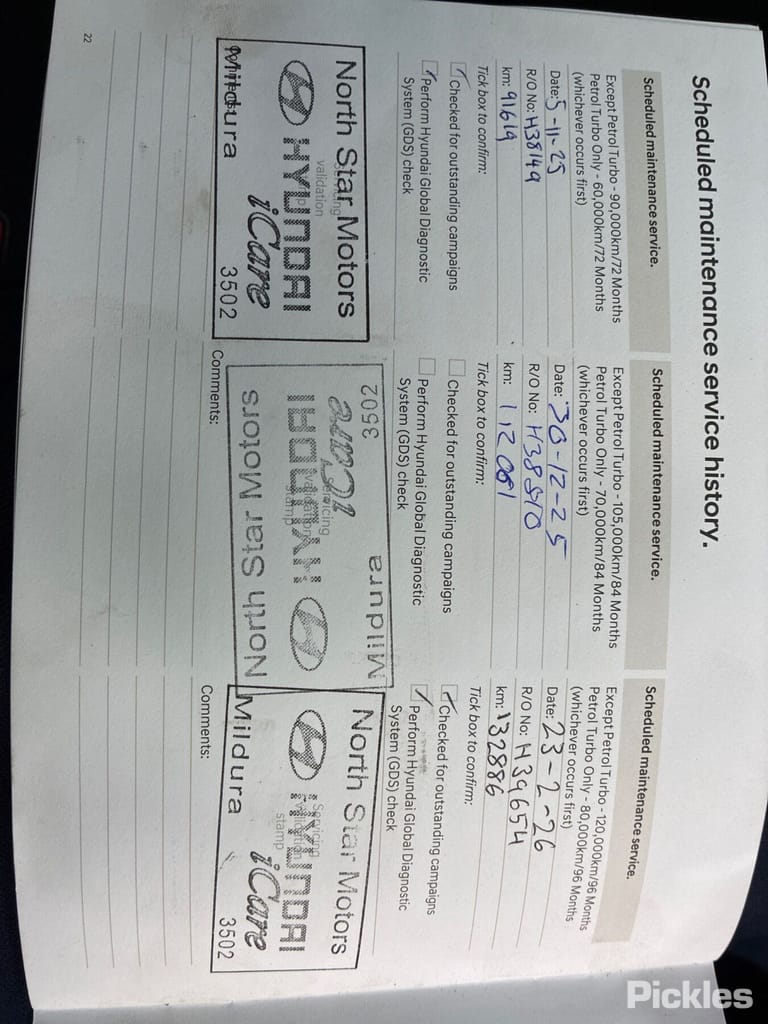 Scheduled maintenance service history.
Scheduled maintenance service.
Except Petrol Turbo - 90,000km/72 Months
Petrol Turbo Only - 60,000km/72 Months
(whichever occurs first)
Date: 5-11-25
R/O No: H38149
km: 91619
Tick box to confirm:
Checked for outstanding campaigns
Perform Hyundai Global Diagnostic
System (GDS) check
North Star Motors
validation
HYUNDAI
iCare
Mildura
3502
Scheduled maintenance service.
Except Petrol Turbo - 105,000km/84 Months
Petrol Turbo Only - 70,000km/84 Months
(whichever occurs first)
Date: 30-12-25
R/O No:
km: 112081
Tick box to confirm:
Checked for outstanding campaigns
Perform Hyundai Global Diagnostic
System (GDS) check
North Star Motors
HYUNDAI
iCare
Mildura
3502
Servicing
validation
stamp
Comments:
Scheduled maintenance service.
Except Petrol Turbo - 120,000km/96 Months
Petrol Turbo Only - 80,000km/96 Months
(whichever occurs first)
Date: 23-2-26
R/O No: H39654
km: 132886
Tick box to confirm:
Checked for outstanding campaigns
Perform Hyundai Global Diagnostic
System (GDS) check
North Star Motors
Servicing
validation
stamp
HYUNDAI
iCare
Mildura
3502
Comments:
22
Pickles